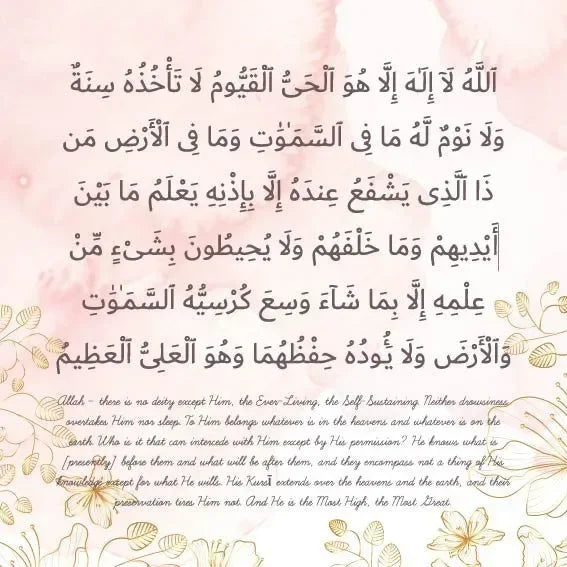 ٱللَّهُ لَآ إِلَـٰهَ إِلَّا هُوَ ٱلْحَىُّ ٱلْقَيُّومُ لَا تَأْخُذُهُ سِنَةٌ
وَلَا نَوْمٌ لَّهُ مَا فِى ٱلسَّمَـٰوَٰتِ وَمَا فِى ٱلْأَرْضِ مَن
ذَا ٱلَّذِى يَشْفَعُ عِندَهُ إِلَّا بِإِذْنِهِ يَعْلَمُ مَا بَيْنَ
أَيْدِيهِمْ وَمَا خَلْفَهُمْ وَلَا يُحِيطُونَ بِشَىْءٍ مِّنْ
عِلْمِهِ إِلَّا بِمَا شَآءَ وَسِعَ كُرْسِيُّهُ ٱلسَّمَـٰوَٰتِ
وَٱلْأَرْضَ وَلَا ئَُودُهُ حِفْظُهُمَا وَهُوَ ٱلْعَلِىُّ ٱلْعَظِيمُ
Allah - there is no deity except Him, the Ever-Living, the Self-Sustaining. Neither drowsiness
overtakes Him nor sleep. To Him belongs whatever is in the heavens and whatever is on the
earth. Who is it that can intercede with Him except by His permission? He knows what is
[presently] before them and what will be after them, and they encompass not a thing of His
knowledge except for what He wills. His Kursī extends over the heavens and the earth, and their
preservation tires Him not. And He is the Most High, the Most Great.